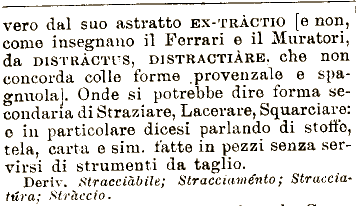 vero dal suo astratto EX-TRÀCTIO [e non,
come insegnano il Ferrari e il Muratori,
da DISTRÀCTUS, DISTRACTIÀRE, che non
concorda colle forme provenzale e spa-
gnuola]. Onde si potrebbe dire forma se-
condaria di Straziare, Lacerare, Squarciare:
e in particolare dicesi parlando di stoffe,
tela, carta e sim. fatte in pezzi senza ser-
virsi di strumenti da taglio.
Deriv. Stracciàbile; Stracciaménto; Straccia-
túra; Stràccio.